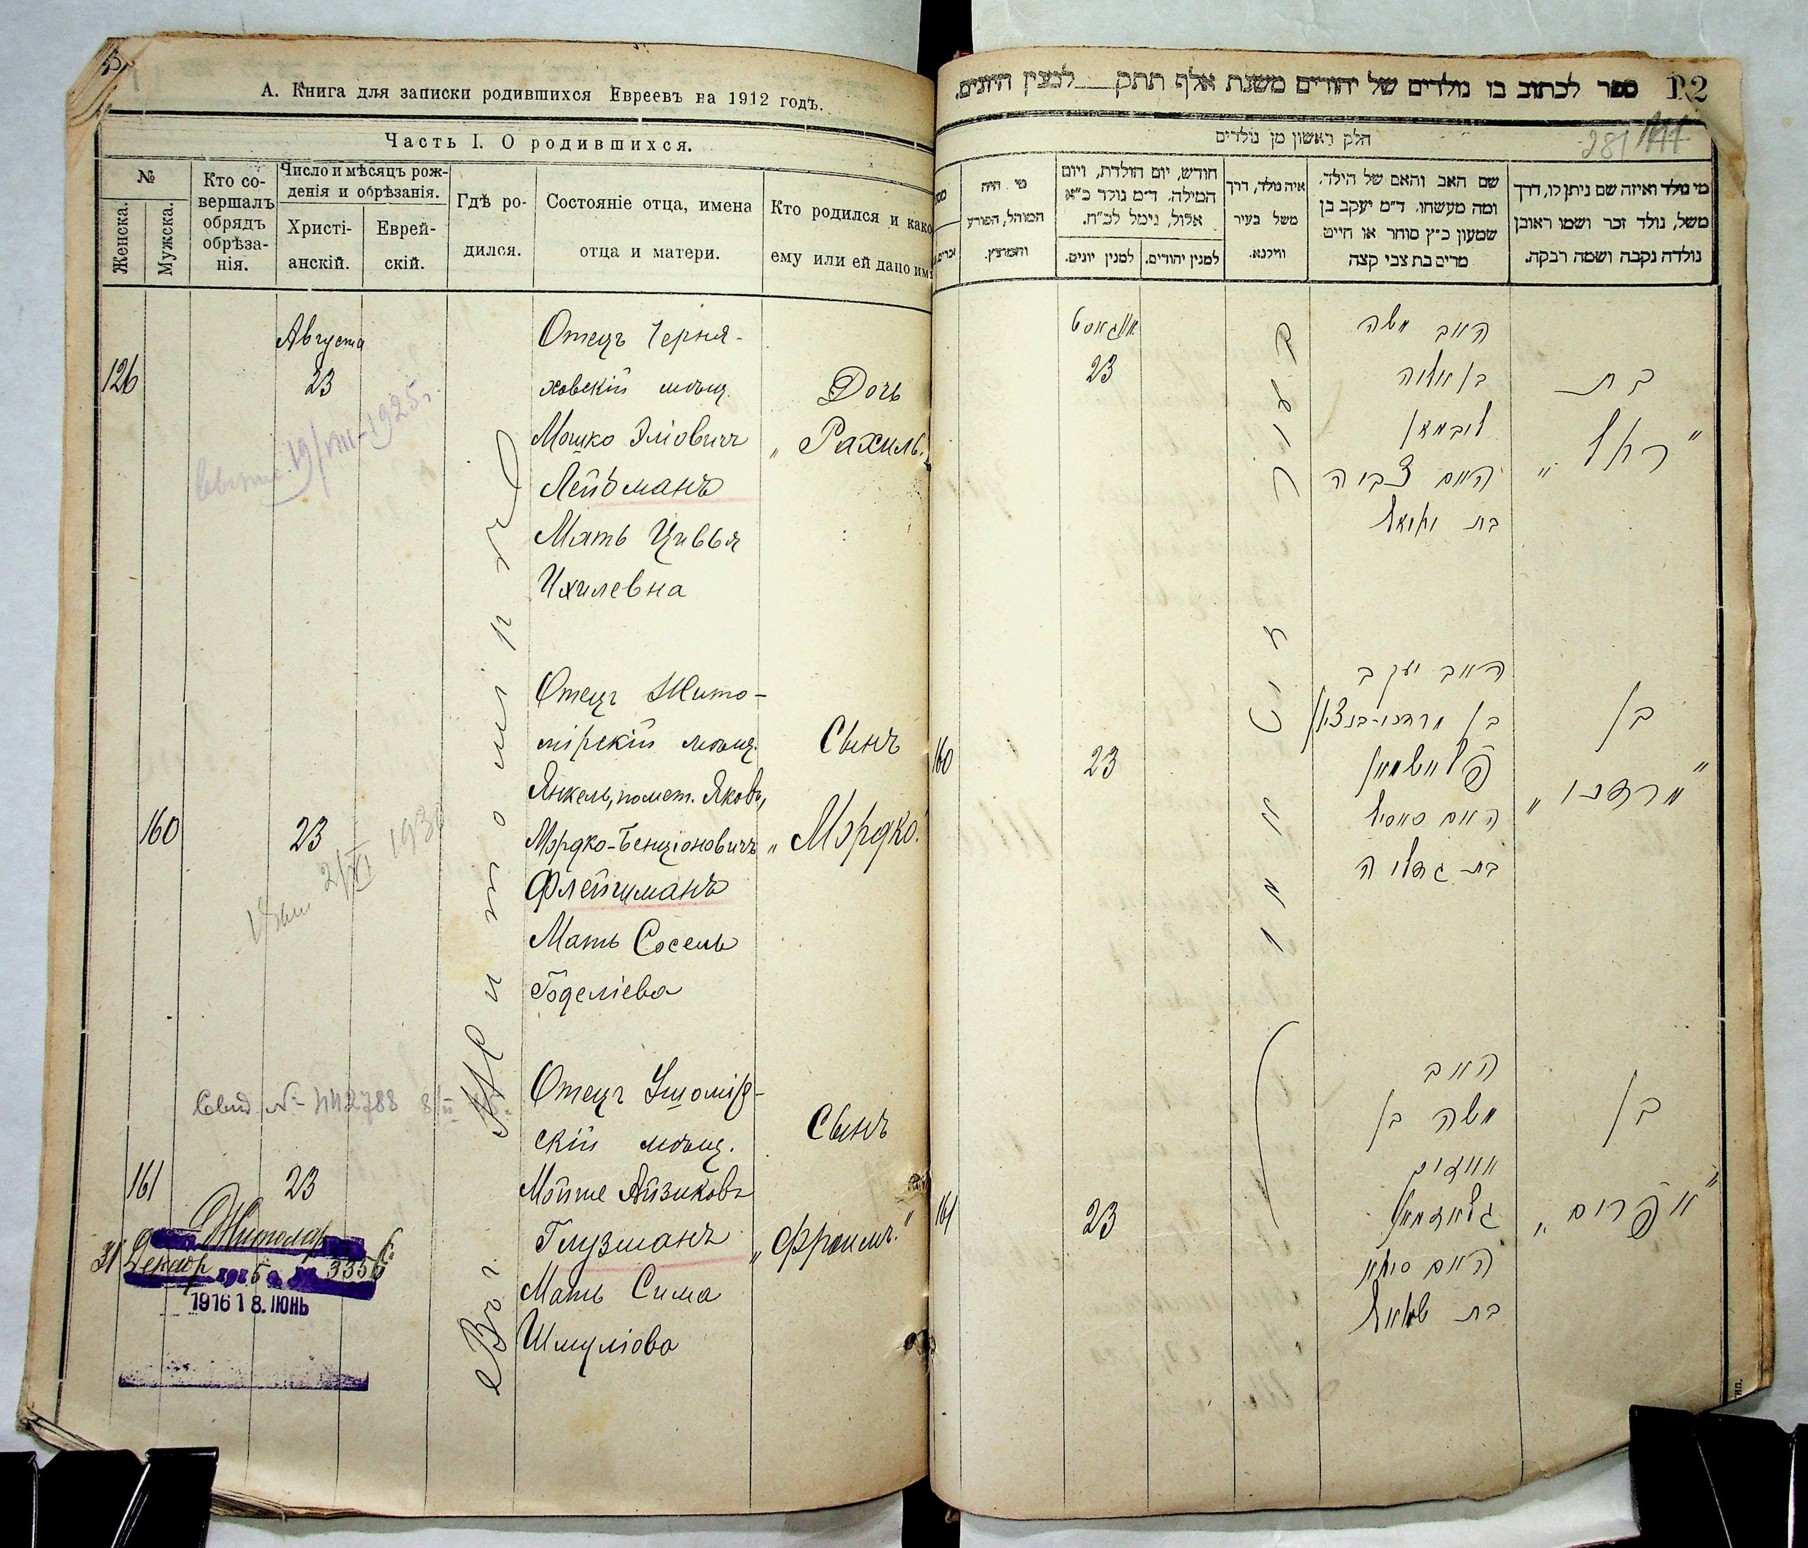 А. Книга для записки родившихся Евреевъ на 1912 годъ.
Часть I. О родившихся.
№
Женска.
Мужска.
Кто со-
вершалъ
обрядъ
обрѣза-
нія.
Число и мѣсяцъ рож-
денія и обрѣзанія.
Христі-
анскій.
Еврей-
скій.
Гдѣ ро-
дился.
Состояніе отца, имена
отца и матери.
Кто родился и како
ему или ей дано имя
Августа
126
23
19/VIII-1925 г.
Отецъ Черня-
ховскій мѣщ.
Мошко Эліовичъ
Лейбманъ
Мать Цивья
Ихилевна
Дочь
„Рахиль“
Въ г. Житомірѣ
160
23
Отецъ Жито-
мірскій мѣщ.
Янкель, помет. Яковъ,
Мордко-Бенціоновичъ
Флейшманъ
Мать Сосель
Годеліева
Сынъ
„Мордко“
161
23
Отецъ Ушомір-
скій мѣщ.
Мойше Айзиковъ
Глузманъ
Мать Сима
Шмуліова
Сынъ
„Фроимъ“
31
3356
1916 18. ІЮНЬ
ספר לכתוב בו נולדים של יהודים משנת אלף תתק למנין היונים.
חלק ראשון מן נולדים
מי נולד ואיזה שם ניתן לו, דרך
משל, נולד זכר ושמו ראובן
נולדה נקבה ושמה רבקה.
שם האב והאם של הילד,
ומה מעשהו. ד״מ יעקב בן
שמעון כ״ץ סוחר או חייט
מרים בת צבי קצה
איה נולד, דרך
משל בעיר
ווילנא.
חודש, יום הולדת, ויום
המילה. ד״מ נולד כ״א
אלול, נימל לכ״ח.
למנין יהודים.
למנין יונים.
מי היה
המוהל, הפורע
והמוצץ.
אויגוסט
23
האב משה
בן אליה
לייבמאן
האם צביה
בת יחיאל
בת
„רחל“
160
23
האב יעקב
בן מרדכי-בנציון
פליישמאן
האם סאסיל
בת גדליה
בן
„מרדכי“
161
23
האב
משה בן
אייזיק
גלוזמאן
האם סימא
בת שמואל
בן
„אפרים“